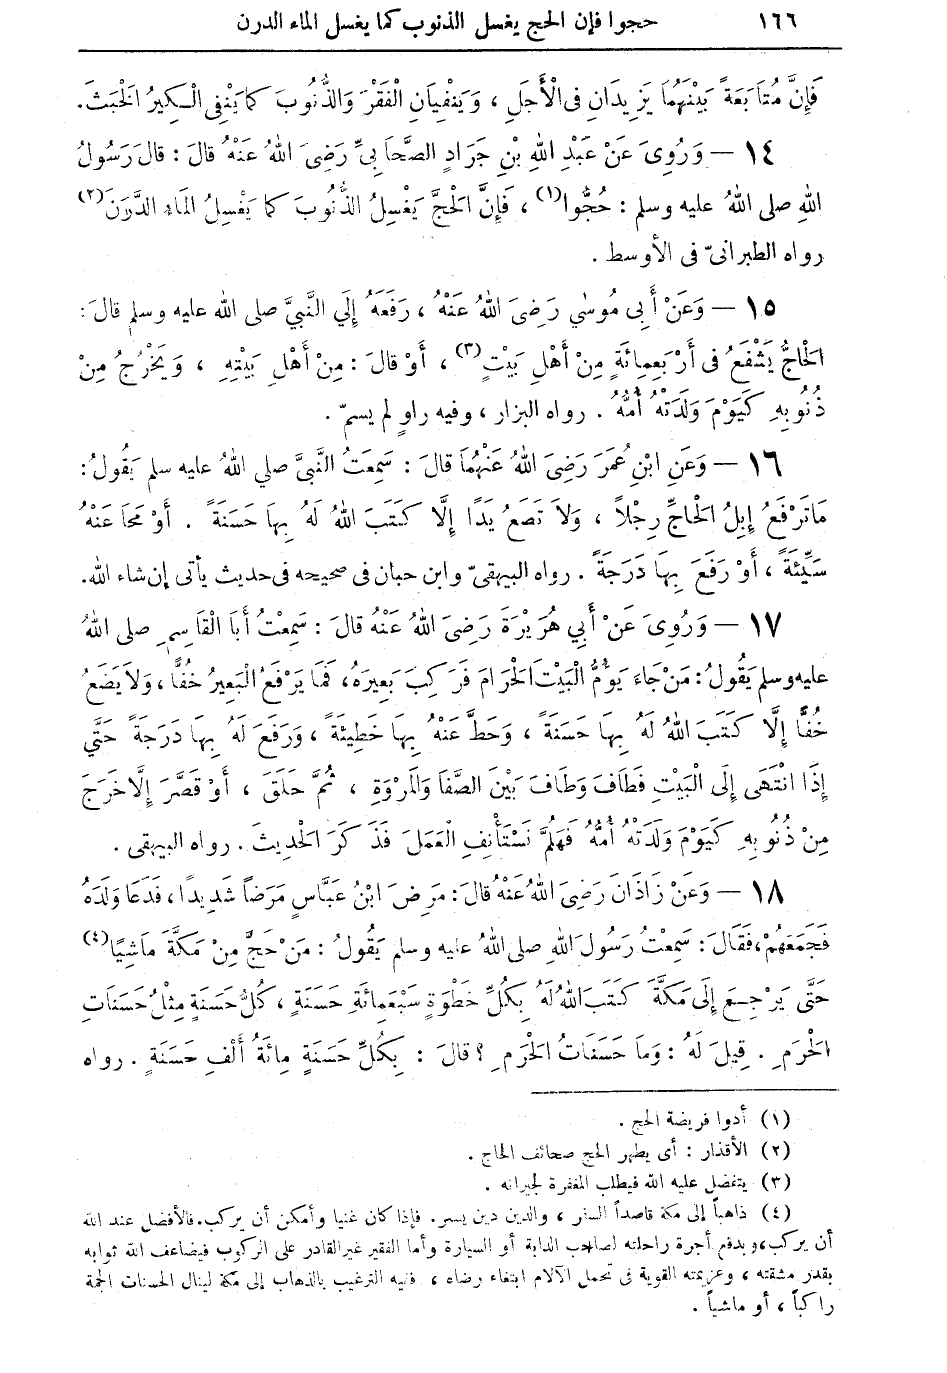 ١٦٦ حجوا فإن الحج يغسل الذنوب كما يغسل الماء الدرن
فَإِنَّ مُتَابَعَةً بَيْنَهُمَا يَزِيدَانِ فِى الْأَجَلِ ، وَيَنْفِيَانِ الْفَقْرَ وَالذُّنُوبَ كَمَا يَنْفِى الْكِيرُ الْخَبَثَ .
١٤ — وَرُوِىَ عَنْ عَبْدِ اللهِ بْنِ جَرَادٍ الصَّحَابِىِّ رَضِىَ اللهُ عَنْهُ قَالَ : قالَ رَسُولُ
اللهِ صلى اللهُ عليه وسلم : حُجُّوا(١) ، فَإِنَّ الْحَجَّ يَغْسِلُ الذُّنُوبَ كَمَا يَغْسِلُ الْمَاءِ الدَّرَنَ(٢)
رواه الطبرانىّ فى الأوسط .
١٥ — وَعَنْ أَبِى مُوسٰى رَضِىَ اللهُ عَنْهُ ، رَفَعَهُ إِلَي النَّبِيَّ صلى الله عليه وسلم قالَ :
الْحَاجُّ يَشْفَعُ فى أَرْبَعِمِائَةٍ مِنْ أَهْلِ بَيْتٍ(٣) ، أَوْ قالَ : مِنْ أَهْلِ بَيْتِهِ ، وَيَخْرُجُ مِنْ
ذُنُوبِهِ كَيَوْمَ وَلَدَتْهُ أُمُّهُ . رواه البزار ، وفيه راوٍ لم يسمّ .
١٦ — وَعَنِ ابْنِ عُمَرَ رَضِىَ اللهُ عَنْهُمَا قالَ : سَمِعَتُ النَّبىَّ صلي اللهُ عليه سلم يَقُولُ :
مَاتَرْفَعُ إِبِلُ الْحَاجِّ رِجْلاً ، وَلاَ تَضَعُ يَدًا إِلَّا كَتَبَ اللهُ لَهُ بِهَا حَسَنَةً . أَوْ مَحَا عَنْهُ
سَيِّئَةً ، أَوْ رَفَعَ بِهَا دَرَجَةً . رواه البيهقىّ وابن حبان فى صحيحه فى حديث يأتى إن شاء الله .
١٧ — وَرُوِىَ عَنْ أَبِي هُرَيْرَةَ رَضِىَ اللهُ عَنْهُ قالَ : سَمِعْتُ أَبَا الْقَاسِمِ صلى اللهُ
عليه وسلم يَقُولُ : مَنْ جَاءَ يَؤُمُّ الْبَيْتَ الْحَرَامَ فَرَكِبَ بَعِيرَهُ ، فَمَا يَرْفَعُ الْبَعِيرُ خُفًّا ، وَلاَ يَضَعُ
خُفًّا إِلَّا كَتَبَ اللهُ لَهُ بِهَا حَسَنَةً ، وَحَطَّ عَنْهُ بِهَا خَطِيئَةً ، وَرَفَعَ لَهُ بِهَا دَرَجَةً حَتَّي
إِذَا انْتَهَى إِلَى الْبَيْتِ فَطَافَ وَطَافَ بَيْنَ الصَّفَا وَالْمَرْوَةِ ، ثُمَّ حَلَقَ ، أَوْ قَصَّرَ إِلَّا خَرَجَ
مِنْ ذُنُوبِهِ كَيَوْمَ وَلَدَتْهُ أُمُّهُ فَهَلُمَّ نَسْتَأْنِفِ الْعَمَلَ فَذَكَرَ الْحَدِيثَ . رواه البيهقى .
١٨ — وَعَنْ زَاذَانَ رَضِىَ اللهُ عَنْهُ قالَ : مَرِضَ ابْنُ عَبَّاسٍ مَرَضاً شَدِيدًا ، فَدَعَا وَلَدَهُ
فَجَمَعَهُمْ ، فَقَالَ : سَمِعْتُ رَسُولَ اللهِ صلى اللهُ عليه وسلم يَقُولُ : مَنْ حَجَّ مِنْ مَكَّةَ مَاشِيًا(٤)
حَتَّى يَرْجِعَ إِلَى مَكَّةَ كَتَبَ اللهُ لَهُ بِكُلِّ خَطْوَةٍ سَبْعَمِائَةِ حَسَنَةٍ ، كُلُّ حَسَنَةٍ مِثْلُ حَسَنَاتِ
الْحَرَمِ . قِيلَ لَهُ : وَمَا حَسَنَاتُ الْحَرَمِ ؟ قالَ : بِكُلِّ حَسَنَةٍ مِائَةُ أَلْفِ حَسَنَةٍ . رواه
(١) أدوا فريضة الحج .
(٢) الأقذار : أى يطهر الحج صحائف الحاج .
(٣) يتفضل عليه الله فيطلب المغفرة لجيرانه .
(٤) ذاهباً إلى مكة قاصداً السفر ، والدين دين يسر . فإذا كان غنيا وأمكن أن يركب . فالأفضل عند الله
أن يركب ، ويدفع أجرة راحلته لصاحب الدابة أو السيارة وأما الفقير غير القادر على الركوب فيضاعف الله ثوابه
بقدر مشقته ، وعزيمته القوية فى تحمل الآلام ابتغاء رضاه ، ففيه الترغيب بالذهاب إلى مكة لينال الحسنات الجمة
راكباً ، أو ماشياً .